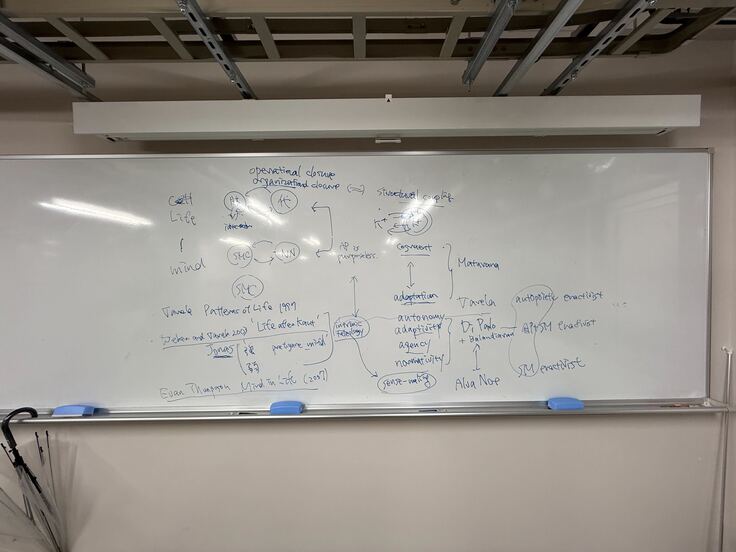 operational closure
organizational closure ⇔ structural coupling
Cell
Life
mind
SMC
NN
SMC
AP is purposeless.
Cognition
Maturana
adaptation
Varela
Varela Patterns of Life 1997
Weber and Varela 2002 'Life after Kant'
Jonas 強 prefigure mind
弱
Evan Thompson Mind in Life (2007)
intrinsic teleology
autonomy
adaptivity
agency
normativity
sense-making
Di Paolo
+ Balandiaran
Alva Noe
autopoietic enactivist ...
AP+SM enactivist
SM enactivist